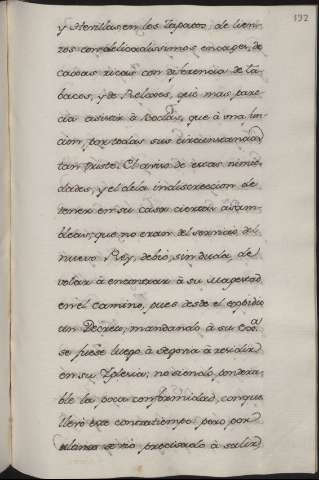 192
y Hevillas en los Zapatos, de lien-
zos con delicadissimos encages, de
caxas ricas con diferencia de ta-
bacos, y de Reloxes, que mas pare-
cia asistir à Bodas, que à una fun-
cion por todas sus circunstancias
tan triste. El aviso de estas nimie-
dades, y el de la indiscrecion de
tener en su casa ciertas asam-
bleas, que no eran del servicio del
nuevo Rey, debio, sin duda, de
volar à encontrar à su Magestad
en el camino, pues desde el expidio
un Decreto, mandando à su Exª.
se fuese luego à Segovia à residir
en su Yglesia; no siendo pondera-
ble la poca conformidad, con que
llevò este contratiempo; pero por
ultimo se viò precisado à salir